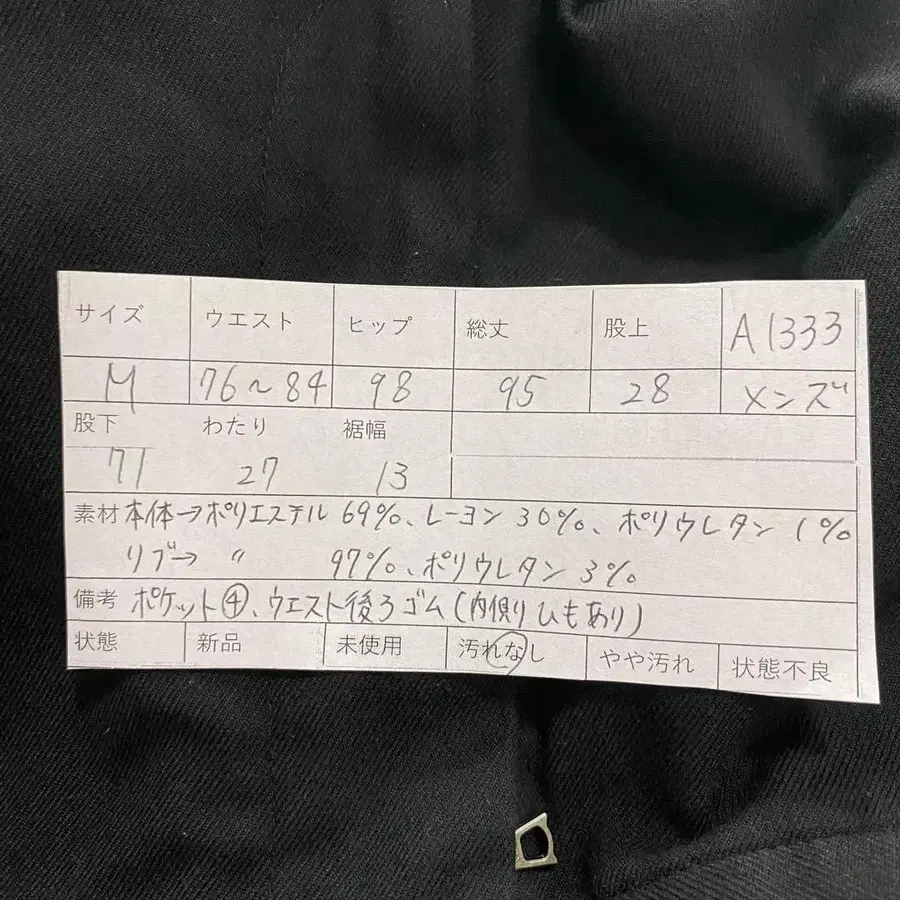 サイズ ウエスト ヒップ 総丈 股上 A1333
M 76~84 98 95 28 メンズ
股下 わたり 裾幅
71 27 13
素材 本体→ポリエステル 69%、レーヨン 30%、ポリウレタン 1%
リブ→ 〃 97%、ポリウレタン 3%
備考 ポケット④、ウエスト後ろゴム(内側ひもあり)
状態 新品 未使用 汚れなし やや汚れ 状態不良